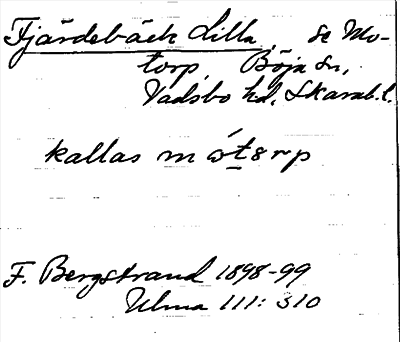 Fjärdebäck Lilla, se Mo-
torp, Böja sn,
Vadsbo hd, Skarab.l.
kallas
F. Bergstrand 1898-99
Ulma 111: 310